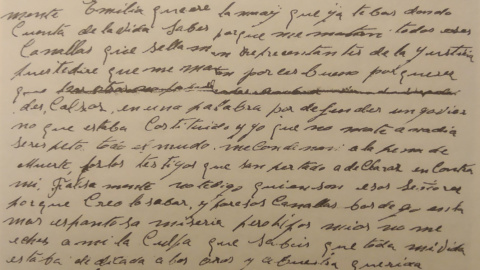 mente Emilia querer la muy que ya te bas dando
Cuenta de la vida sabes porque me matan: todos esos
Canallas qise sellaman rrepresentantes de la Yusticia
puestedire que me matan por ser bueno por querer
que
des Calzos, en una palabra por defender un govier
no que estaba Costituido y yo que no mate a nadia
serespeto todo el mudo. me Condenan a la pena de
Muerte, por los testigos que san pertado a declarar en Contra
mi, Falsa mente no te digo quienson esos señores
porque Creo lo sabes, y por esos Canallas bos dego en la
mas espantosa miseria pero hijos mios no me
echeis a mi la Culpa que sabeis que toda mi vida
estaba dedicada a bos otros y a buestra querida